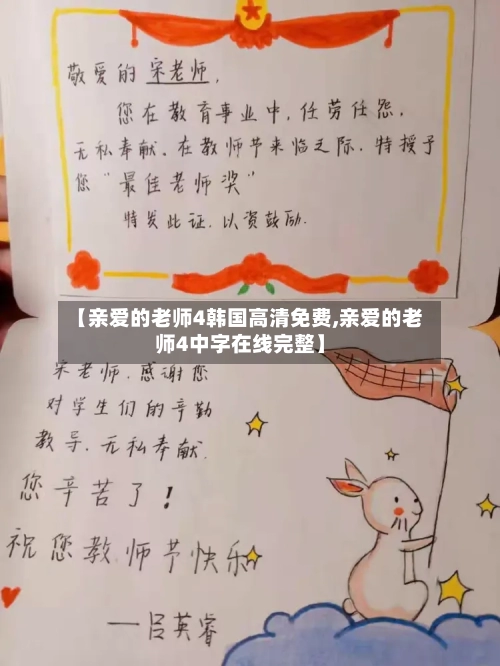 敬爱的 宋老师,
您在教育事业中,任劳任怨,
无私奉献。在教师节来临之际,特授予
您“最佳老师奖”
特发此证,以资鼓励.
【亲爱的老师4韩国高清免费,亲爱的老
师4中字在线完整】
宋老师,感谢您
对学生们的辛勤
教导、无私奉献.
您辛苦了!
祝您教师节快乐
——吕英睿